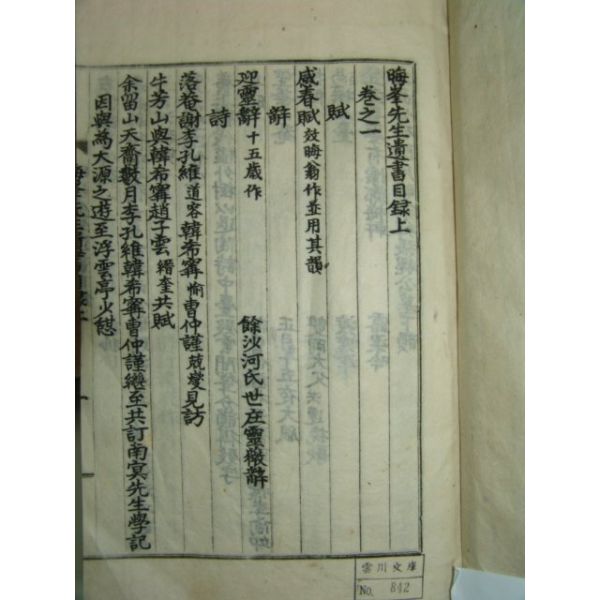 晦峯先生遺書目録上
卷之一
賦
感春賦 效晦翁作並用其韻
辭
迎靈辭 十五歲作 餘沙河氏世庄靈幑辭
詩
落菴謝李孔維 道容 韓希甯 愉 曹仲謹 兢燮 見訪
牛芳山與韓希甯趙子雲 縉奎 共賦
余留山天齋數月李孔維韓希甯曹仲謹繼至共訂南冥先生學記
因與為大源之遊至浮雲亭少憇
雲川文庫
No. 842